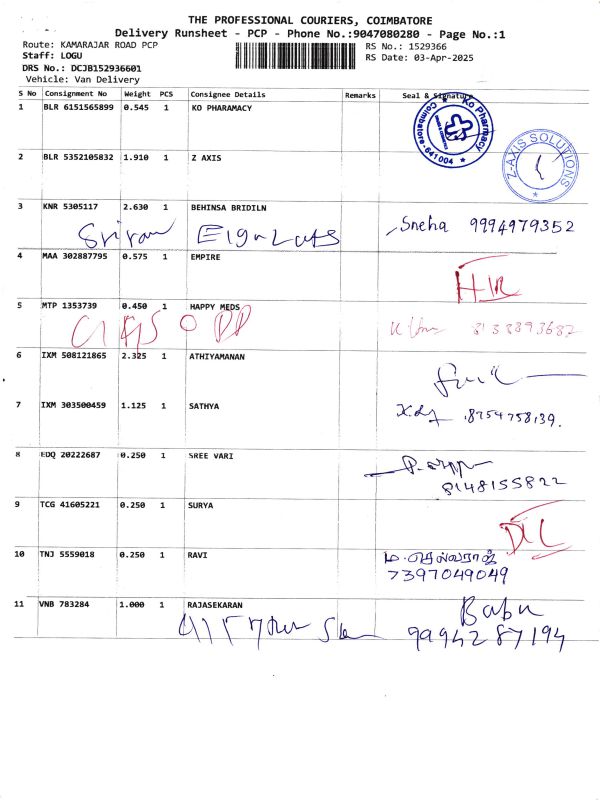 THE PROFESSIONAL COURIERS, COIMBATORE
Delivery Runsheet - PCP - Phone No.:9047080280 - Page No.:1
Route: KAMARAJAR ROAD PCP
Staff: LOGU
DRS No.: DCJB152936601
Vehicle: Van Delivery
RS No.: 1529366
RS Date: 03-Apr-2025
S No Consignment No Weight PCS Consignee Details Remarks Seal & Signature
1 BLR 6151565899 0.545 1 KO PHARAMACY
Ko Pharmacy
Coimbatore-641004
2 BLR 5352105832 1.910 1 Z AXIS
Z-AXIS SOLUTIONS
3 KNR 5305117 2.630 1 BEHINSA BRIDILN
Sneha 9994979352
4 MAA 302887795 0.575 1 EMPIRE
5 MTP 1353739 0.450 1 HAPPY MEDS
6 IXM 508121865 2.325 1 ATHIYAMANAN
7 IXM 303500459 1.125 1 SATHYA
8754758139.
8 EDQ 20222687 0.250 1 SREE VARI
8148155822
9 TCG 41605221 0.250 1 SURYA
DL
10 TNJ 5559018 0.250 1 RAVI
ம.செல்வராஜ்
7397049049
11 VNB 783284 1.000 1 RAJASEKARAN
Babu
9994287194